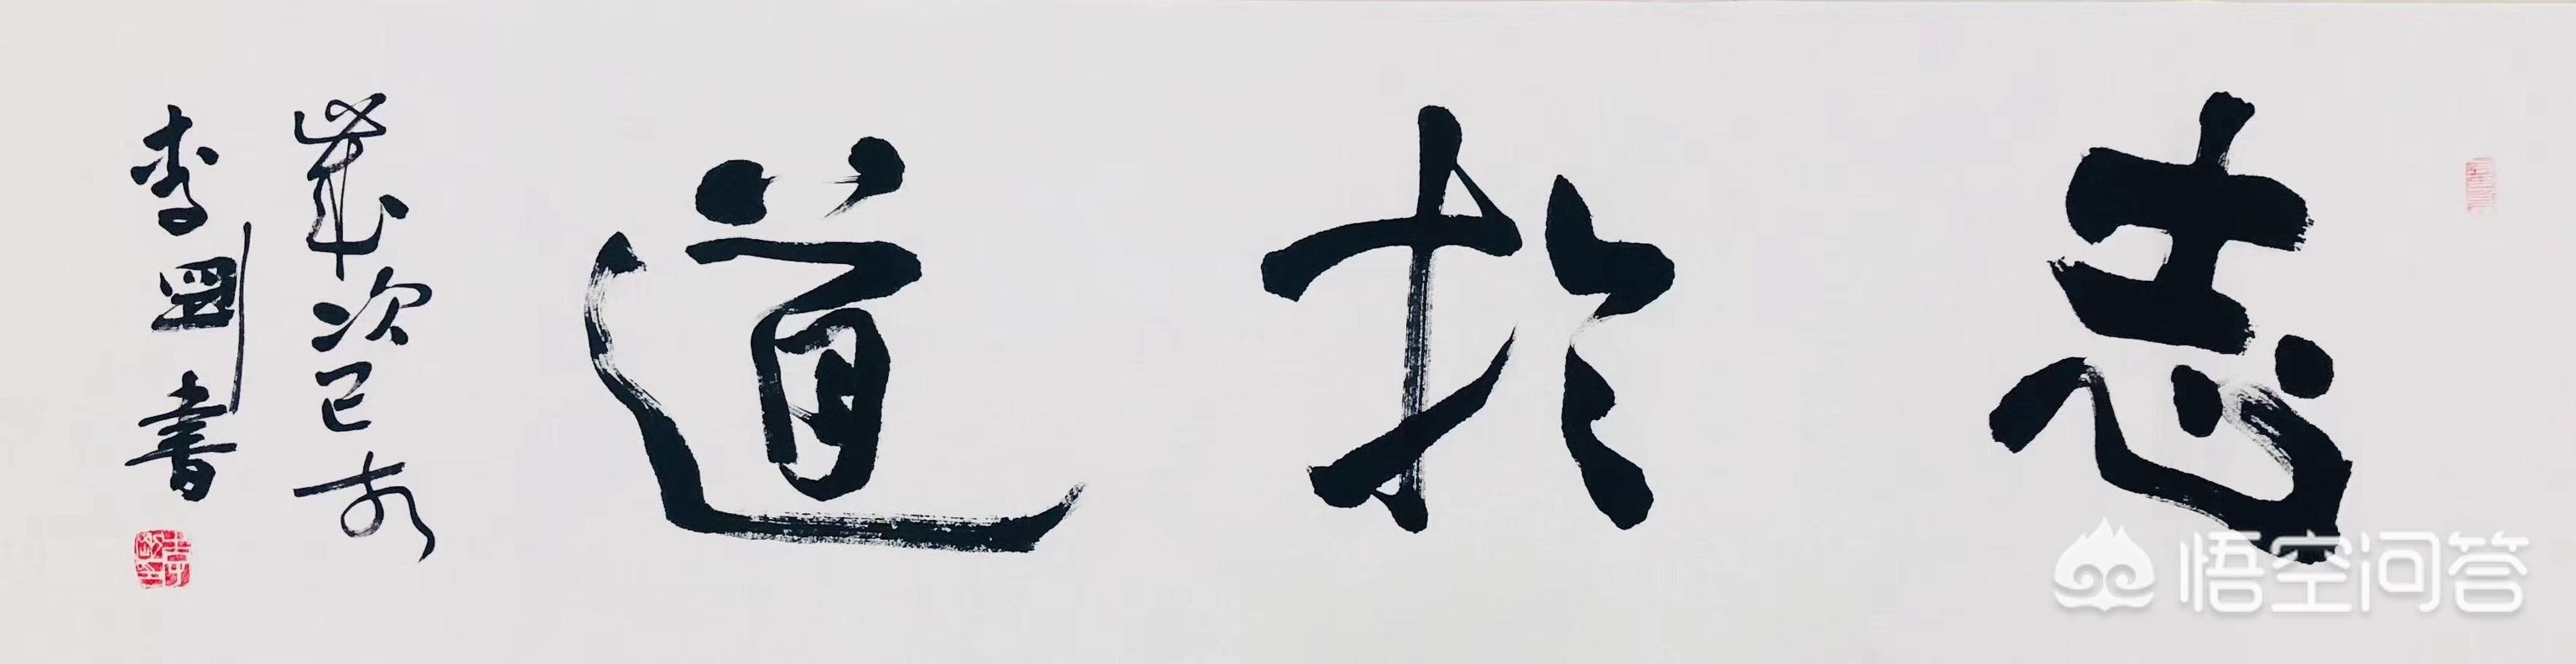 志於道
歲次己亥
李剛書
悟空问答